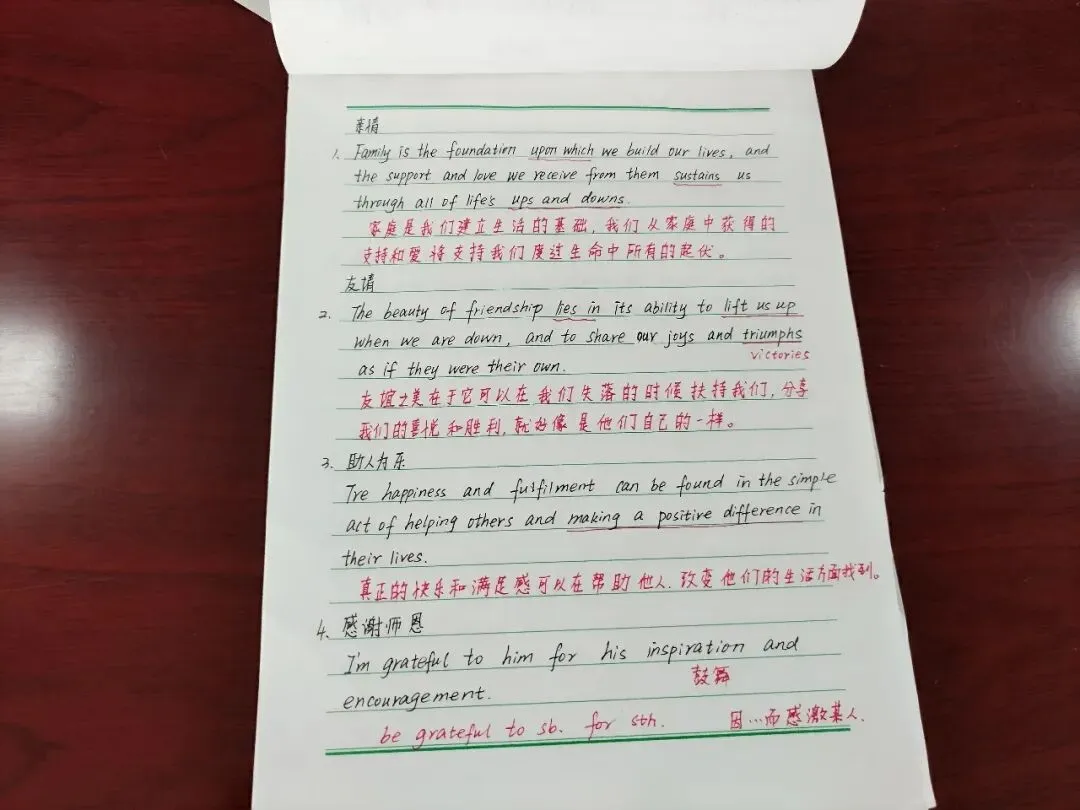 亲情
1. Family is the foundation upon which we build our lives, and
the support and love we receive from them sustains us
through all of life's ups and downs.
家庭是我们建立生活的基础，我们从家庭中获得的
支持和爱将支持我们度过生命中所有的起伏。
友情
2. The beauty of friendship lies in its ability to lift us up
when we are down, and to share our joys and triumphs
victories
as if they were their own.
友谊之美在于它可以在我们失落的时候扶持我们，分享
我们的喜悦和胜利，就好像是他们自己的一样。
3. 助人为乐
Tre happiness and fulfilment can be found in the simple
act of helping others and making a positive difference in
their lives.
真正的快乐和满足感可以在帮助他人、改变他们的生活方面找到。
4. 感谢师恩
I'm grateful to him for his inspiration and
鼓舞
encouragement.
be grateful to sb. for sth. 因…而感激某人.